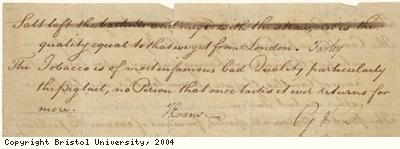 Salt left the
quality equal to that we get from London.
The Tobacco is of most infamous bad Quality, particularly
the Pigtail, no Person that once tastes it ever returns for
more. Evans
Copyright Bristol University, 2004